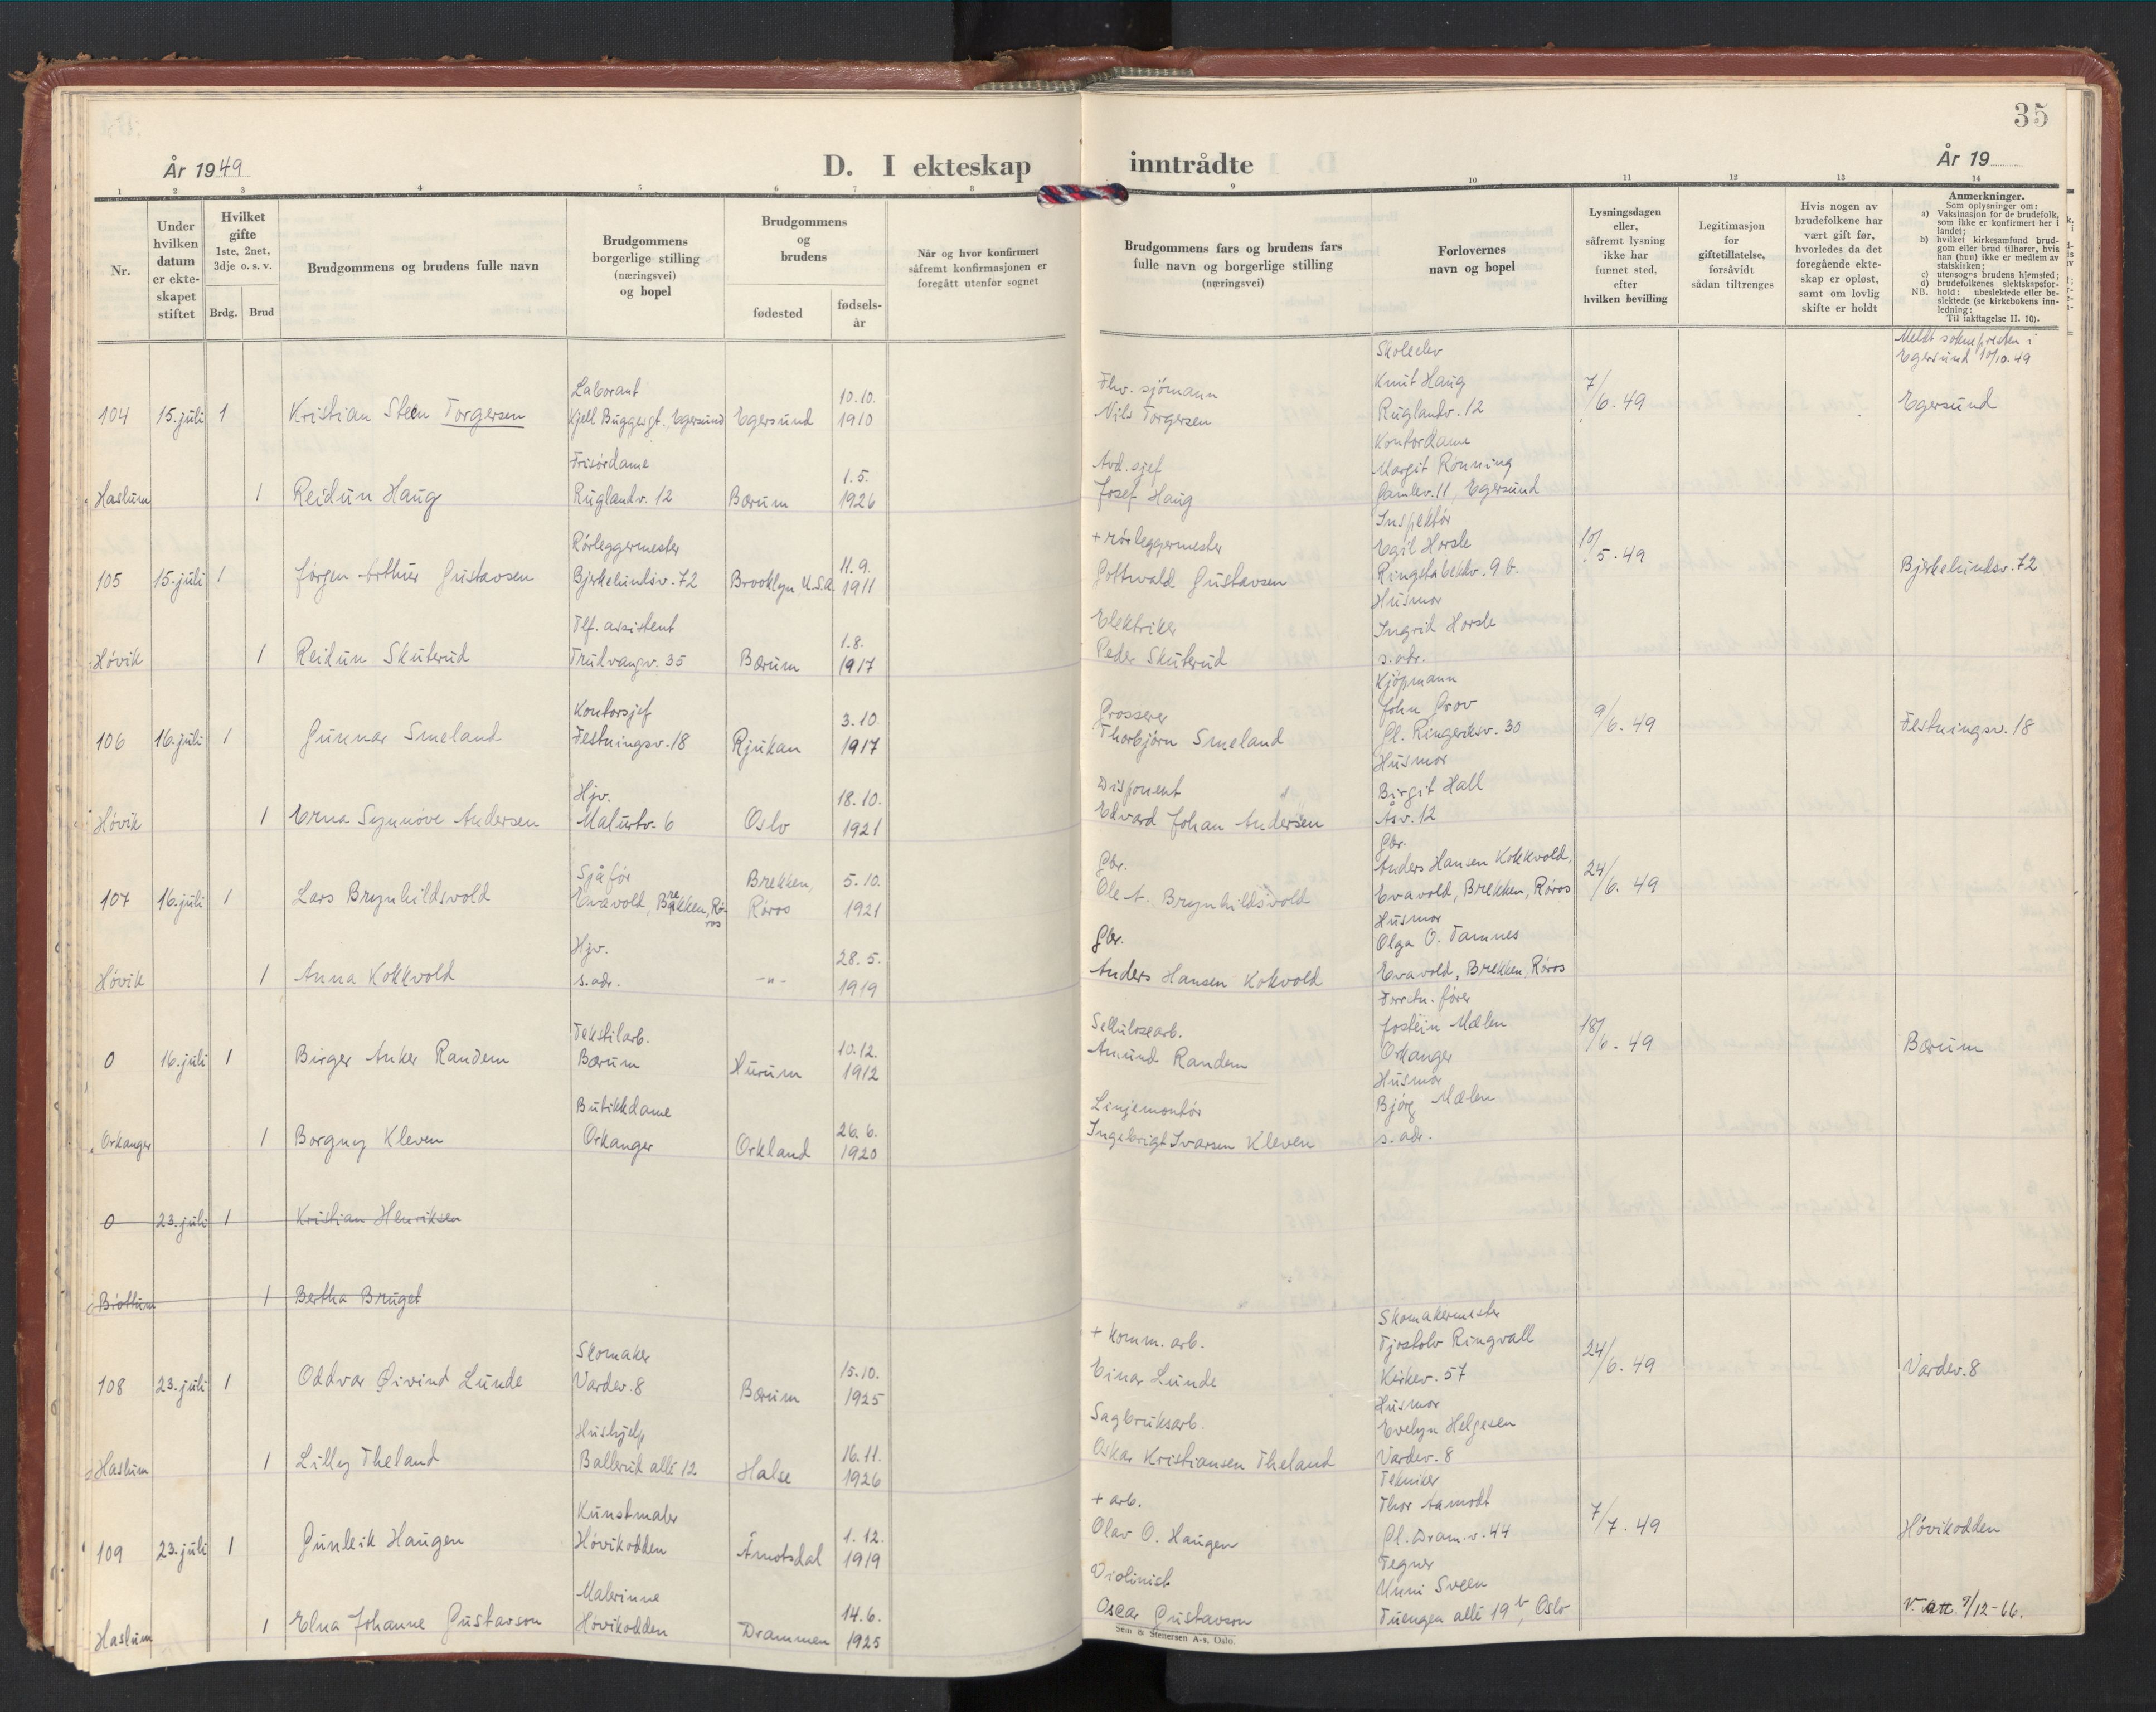 35
År 1949
D. I ekteskap inntrådte
År 19
1 2 3 4 5 6 7 8 9 10 11 12 13 14
Nr.
Under hvilken datum er ekteskapet stiftet
Hvilket gifte
1ste, 2net, 3dje o. s. v.
Brdg. Brud
Brudgommens og brudens fulle navn
Brudgommens borgerlige stilling (næringsvei) og bopel
Brudgommens og brudens
fødested
fødsels-år
Når og hvor konfirmert såfremt konfirmasjonen er foregått utenfor sognet
Brudgommens fars og brudens fars fulle navn og borgerlige stilling (næringsvei)
Forlovernes navn og bopel
Lysningsdagen eller, såfremt lysning ikke har funnet sted, efter hvilken bevilling
Legitimasjon for giftetillatelse, forsåvidt sådan tiltrenges
Hvis nogen av brudefolkene har vært gift før, hvorledes da det foregående ekteskap er opløst, samt om lovlig skifte er holdt
Anmerkninger.
Som oplysninger om:
a) Vaksinasjon for de brudefolk, som ikke er konfirmert her i landet;
b) hvilket kirkesamfund brudgom eller brud tilhører, hvis han (hun) ikke er medlem av statskirken;
c) utensogns brudens hjemsted;
d) brudefolkenes slektskapsforhold: ubeslektede eller beslektede (se kirkebokens innledning:
NB.
Til iakttagelse II. 10).
Meldt soknepresten i
Egersund 10/10.49
104 15. juli 1 Kristian Steen Torgersen
Laborant
Kjell Buggesgt., Egersund
Egersund
10.10.
1910
Fhv. sjömann
Nils Torgersen
Skoleelev
Knut Haug
Ruglandv. 12
7/6.49
Egersund
Haslum 1 Reidun Haug
Frisördame
Ruglandv. 12
Bærum
1.5.
1926
Avd. sjef
Josef Haug
Kontordame
Margit Rönning
Gamlev. 11, Egersund
105 15. juli 1 Jørgen Arthur Gustavsen
Rörleggermester
Bjerkelundsv. 72
Brooklyn, U.S.A.
11.9.
1911
+ rörleggermester
Gottwald Gustavsen
Inspektör
Egil Horsle
Ringstabekkv. 9 b.
10/5.49
Bjerkelundsv. 72
Hövik 1 Reidun Skuterud
Tlf. assistent
Trudvangv. 35
Bærum
1.8.
1917
Elektriker
Peder Skuterud
Husmor
Ingrid Horsle
s. adr.
106 16. juli 1 Gunnar Smeland
Kontorsjef
Festningsv. 18
Rjukan
3.10.
1917
Grosserer
Thorbjörn Smeland
Kjöpmann
John Grov
Gl. Ringeriksv. 30
9/6.49
Festningsv. 18
Hövik 1 Erna Synnöve Andersen
Hjv.
Malurtv. 6
Oslo
18.10.
1921
Disponent
Edvard Johan Andersen
Husmor
Birgit Hall
Åsv. 12
107 16. juli 1 Lars Brynhildsvold
Sjåför
Evavold, Brekken, Röros
Brekken,
Röros
5.10.
1921
Gbr.
Ole A. Brynhildsvold
Gbr.
Anders Hansen Kokkvold,
Evavold, Brekken, Röros
24/6.49
Hövik 1 Anna Kokkvold
Hjv.
s. adr.
-"-
28.5.
1919
Gbr.
Anders Hansen Kokvold
Husmor
Olga O. Tamnes
Evavold, Brekken, Röros
0 16. juli 1 Birger Anker Randem
Tekstilarb.
Bærum
Hurum
10.12.
1912
Sellulosearb.
Amund Randem
Forretn. förer
Jostein Mælen
Orkanger
18/6.49
Bærum
Orkanger 1 Borgny Kleven
Butikkdame
Orkanger
Orkland
26.6.
1920
Linjemontör
Ingebrigt Ivarsen Kleven
Husmor
Björg Mælen
s. adr.
0 23. juli 1 Kristian Henriksen
Bröttum 1 Bertha Bruget
108 23. juli 1 Oddvar Øivind Lunde
Skomaker
Vardev. 8
Bærum
15.10.
1925
+ Komm. arb.
Einar Lunde
Skomakermester
Tjostolv Ringvall
Kirkev. 57
24/6.49
Vardev. 8
Haslum 1 Lilly Theland
Hushjelp
Ballerud allé 12
Halse
16.11.
1926
Sagbruksarb.
Oskar Kristiansen Theland
Husmor
Evelyn Helgesen
Vardev. 8
109 23. juli 1 Gunleik Haugen
Kunstmaler
Hövikodden
Åmotsdal
1.12.
1919
+ arb.
Olav O. Haugen
Tekniker
Thor Aamodt
Gl. Dram. v. 44
7/7.49
Hövikodden
Haslum 1 Elna Johanne Gustavson
Malerinne
Hövikodden
Drammen
14.6.
1925
Violinist
Oscar Gustavson
Tegner
Unni Sveen
Tuengen allé 19 b, Oslo
v. att. 9/12-66.
Sem & Stenersen A-s, Oslo.